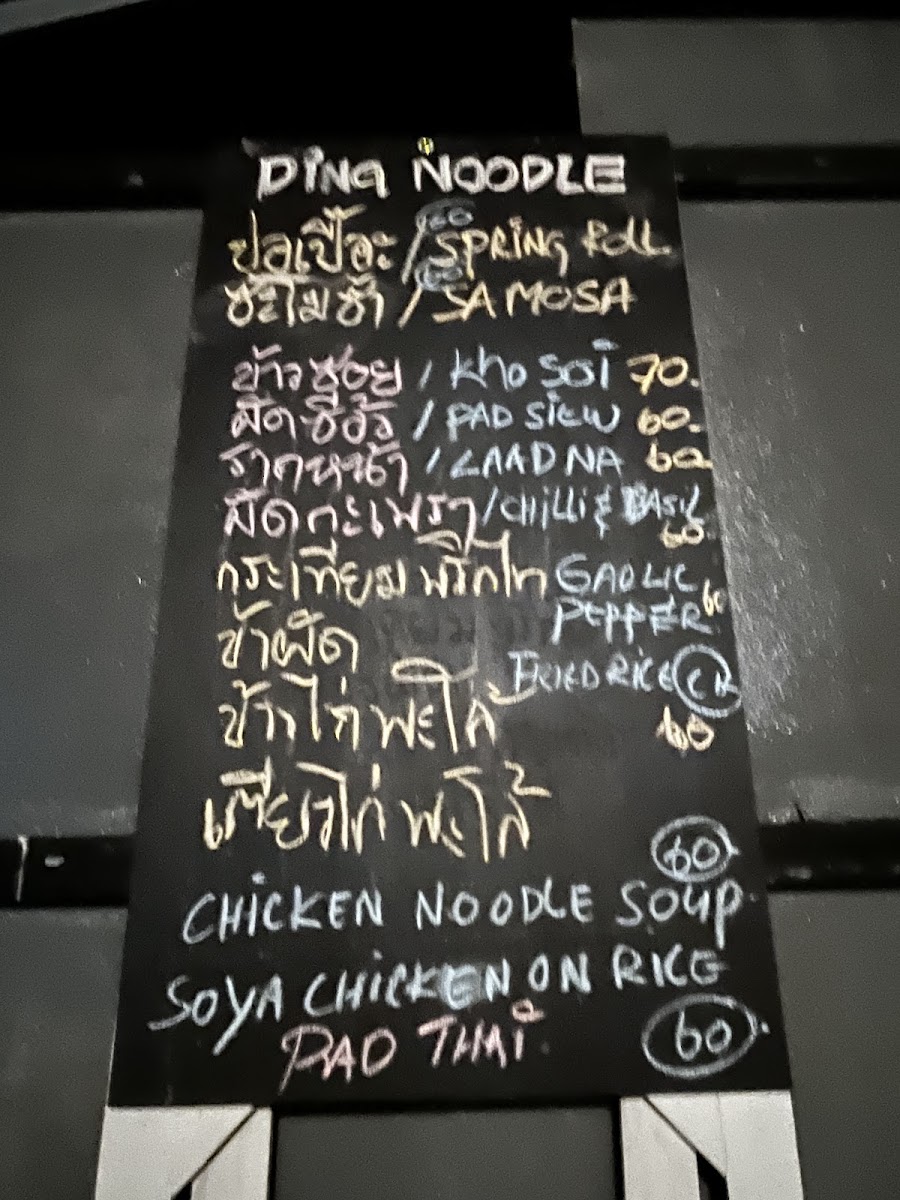 DING NOODLE
ปอเปี๊ยะ / 60 SPRING ROLL
ซะโมซ่า / 60 SAMOSA
ข้าวซอย / KHO SOI 70.-
ผัดซีอิ้ว / PAD SIEW 60.-
ราดหน้า / LAAD NA 60.-
ผัดกะเพรา / CHILLI & BASIL
60
กระเทียมพริกไท GAOLIC
PEPPER 60
ข้าผัด FRIED RICE CK
60
ข้าวไก่พะโล้
เตี๋ยวไก่พะโล้
60
CHICKEN NOODLE SOUP
SOYA CHICKEN ON RICE
PAD THAI 60